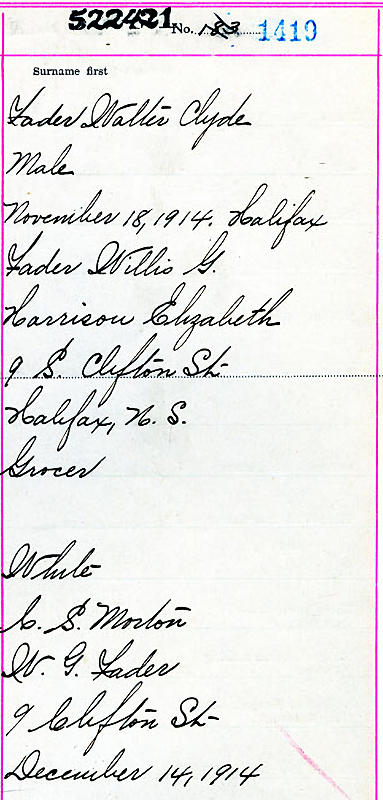 522421 No. 183 1410
Surname first
Fader Walter Clyde
Male
November 18, 1914. Halifax
Fader Willis G.
Harrison Elizabeth
9 S. Clifton St-
Halifax, N. S.
Grocer
White
C. S. Morton
W. G. Fader
9 Clifton St-
December 14, 1914